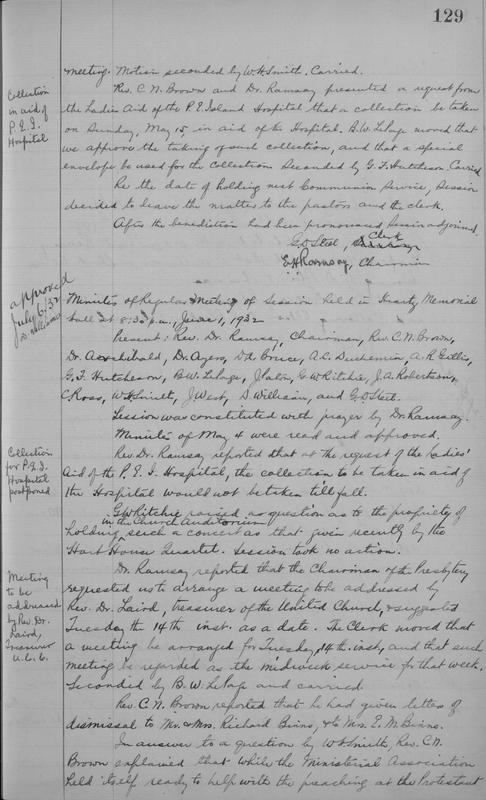 129
meeting. Motion seconded by W.H. Smith. Carried.
Collection in aid of P.E.I. Hospital
Rev. C.N. Brown and Dr. Ramsay presented a request from
the Ladies Aid of the P.E. Island Hospital that a collection be taken
on Sunday, May 15, in aid of the Hospital. B.W. LePage moved that
we approve the taking of such collection, and that a special
envelope be used for the collection. Seconded by G.F. Hutcheson. Carried
Re the date of holding next Communion Service, Session
decided to leave the matter to the pastors and the clerk.
After the benediction had been pronounced Session adjourned.
G.D. Steel, Clerk
E.H. Ramsay, Chairman
approved July 6/32
Minutes of Regular Meeting of Session held in Heartz Memorial
Hall at 8:30 p.m., June 1, 1932
Present: Rev. Dr. Ramsay, Chairman, Rev. C.N. Brown,
Dr. Archibald, Dr. Ayers, D.A. Bruce, A.C. Duchemin, A.R. Gillis,
G.F. Hutcheson, B.W. LePage, J. Paton, G.W. Ritchie, J.A. Robertson,
C. Ross, W.H. Smith, J. West, D. Williams, and G.D. Steel.
Session was constituted with prayer by Dr. Ramsay.
Minutes of May 4 were read and approved.
Collection for P.E.I. Hospital postponed
Rev. Dr. Ramsay reported that at the request of the Ladies'
Aid of the P.E.I. Hospital, the collection to be taken in aid of
the Hospital would not be taken till fall.
G.W. Ritchie raised a question as to the propriety of
holding in the Church Auditorium such a concert as that given recently by the
Hart House Quartet. Session took no action.
Meeting to be addressed by Rev. Dr. Laird, Treasurer U.C.C.
Dr. Ramsay reported that the Chairman of the Presbytery
requested us to arrange a meeting to be addressed by
Rev. Dr. Laird, Treasurer of the United Church, & suggested
Tuesday the 14th inst. as a date. The Clerk moved that
a meeting be arranged for Tuesday, 14th inst, and that such
meeting be regarded as the midweek service for that week.
Seconded by B.W. LePage and carried.
Rev. C.N. Brown reported that he had given letters of
dismissal to Mr. & Mrs. Richard Binns, & to Mrs. E.M. Binns.
In answer to a question by W.H. Smith, Rev. C.N.
Brown explained that while the Ministerial Association
held itself ready to help with the preaching at the Protestant